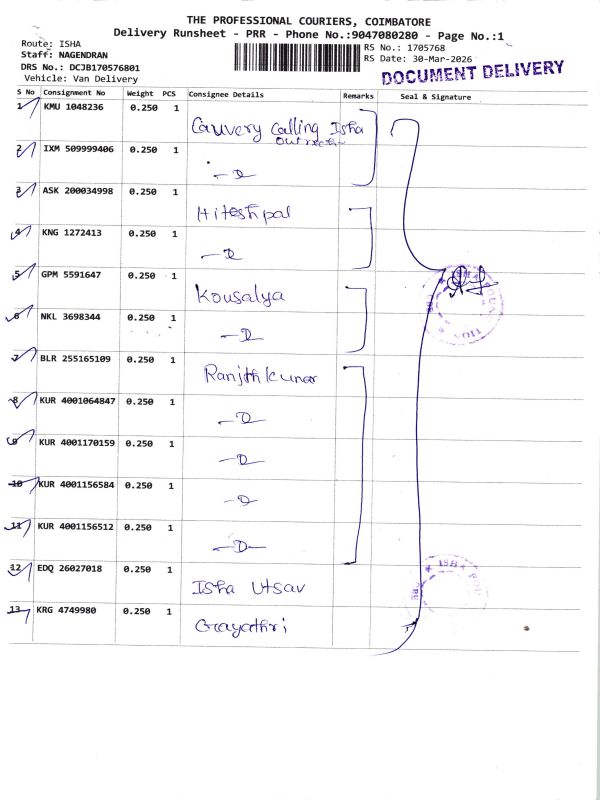 THE PROFESSIONAL COURIERS, COIMBATORE
Delivery Runsheet - PRR - Phone No.:9047080280 - Page No.:1
Route: ISHA
Staff: NAGENDRAN
DRS No.: DCJB170576801
Vehicle: Van Delivery
RS No.: 1705768
RS Date: 30-Mar-2026
DOCUMENT DELIVERY
S No Consignment No Weight PCS Consignee Details Remarks Seal & Signature
1 KMU 1048236 0.250 1 Cauvery Calling Isha
Outreach
2 IXM 509999406 0.250 1 -D
3 ASK 200034998 0.250 1 Hiteshpal
4 KNG 1272413 0.250 1 -D
5 GPM 5591647 0.250 1 Kousalya
6 NKL 3698344 0.250 1 -D
7 BLR 255165109 0.250 1 Ranjithkumar
8 KUR 4001064847 0.250 1 -D
9 KUR 4001170159 0.250 1 -D
10 KUR 4001156584 0.250 1 -D
11 KUR 4001156512 0.250 1 -D-
12 EDQ 26027018 0.250 1 Isha Utsav
13 KRG 4749980 0.250 1 Gayathri